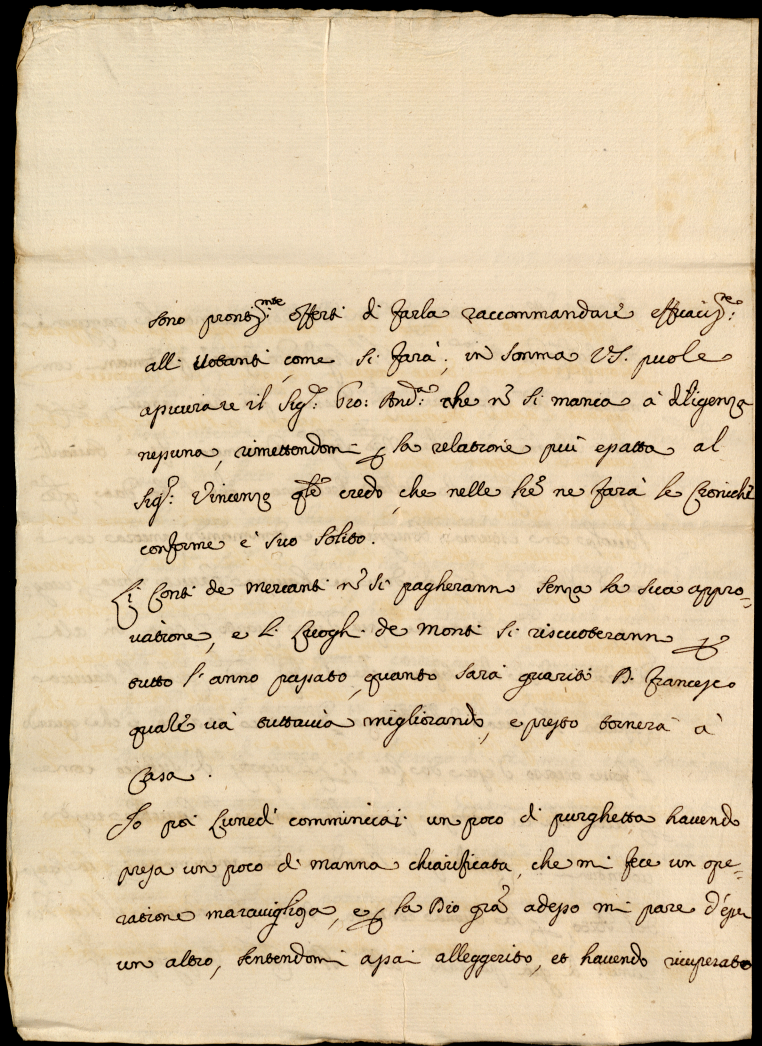 sono prontiss.mte offerti di farla raccommandare efficaciss.te:
alli votanti, come si farà; in somma VS. puole
assicurare il Sig.r Gio: And.a che nõ si manca à diligenza
nessuna, rimettendomi la relatione più esatta al
Sig.r Vincenzo qle credo, che nelle sue ne farà le Croniche
conforme è suo solito.
Li Conti de mercanti nõ si pagheranno senza la sua appro=
vatione, e li Luoghi de Monti si riscuoteranno
tutto l'anno passato, quanto sarà guarito D. Francesco
quale và tuttavia migliorando, e presto tornerà à
Casa.
Io poi Lunedì comminciai un poco di purghetta havendo
presa un poco di manna chiarificata, che mi fece un ope=
ratione maravigliosa, e la Dio grã adesso mi pare d'éssere
un altro, sentendomi assai alleggerito, et havendo ricuperato